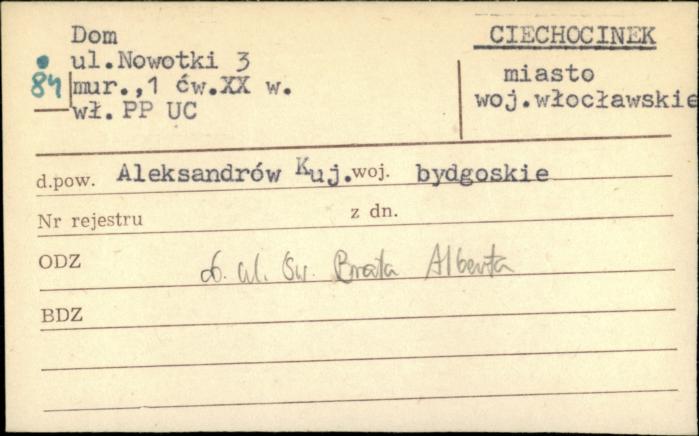 Dom
ul.Nowotki 3
84 mur.,1 ćw.XX w.
wł. PP UC
CIECHOCINEK
miasto
woj.włocławskie
d.pow. Aleksandrów Kuj. woj. bydgoskie
Nr rejestru z dn.
ODZ ob. ul. Św. Brata Alberta
BDZ